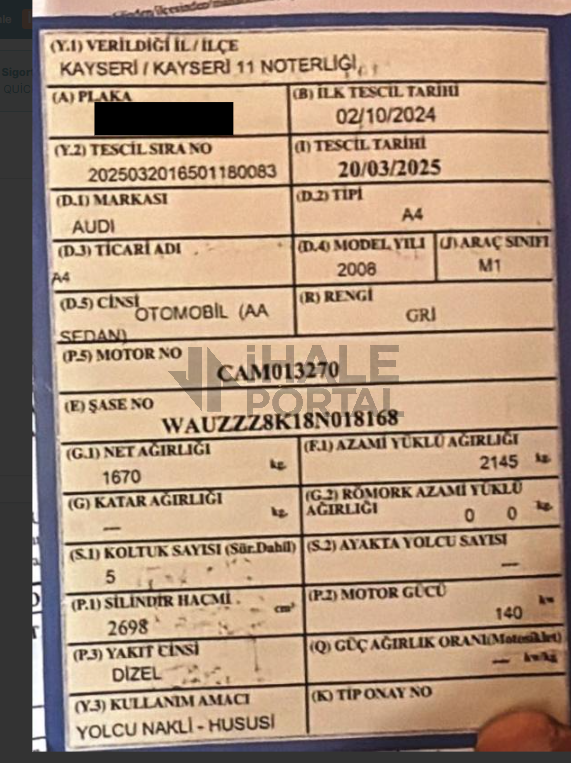 (Y.1) VERİLDİĞİ İL / İLÇE
KAYSERİ / KAYSERİ 11 NOTERLİĞİ
(A) PLAKA
(B) İLK TESCİL TARİHİ
02/10/2024
(Y.2) TESCİL SIRA NO
2025032016501180083
(I) TESCİL TARİHİ
20/03/2025
(D.1) MARKASI
AUDI
(D.2) TİPİ
A4
(D.3) TİCARİ ADI
A4
(D.4) MODEL YILI
2008
(J) ARAÇ SINIFI
M1
(D.5) CİNSİ
OTOMOBİL (AA
SEDAN)
(R) RENGİ
GRİ
(P.5) MOTOR NO
CAM013270
İHALE
PORTAL
(E) ŞASE NO
WAUZZZ8K18N018168
(G.1) NET AĞIRLIĞI
1670 kg.
(F.1) AZAMİ YÜKLÜ AĞIRLIĞI
2145 kg.
(G) KATAR AĞIRLIĞI
— kg.
(G.2) RÖMORK AZAMİ YÜKLÜ
AĞIRLIĞI
0 0 kg.
(S.1) KOLTUK SAYISI (Sür.Dahil)
5
(S.2) AYAKTA YOLCU SAYISI
—
(P.1) SİLİNDİR HACMİ
2698 cm³
(P.2) MOTOR GÜCÜ
140 kw
(P.3) YAKIT CİNSİ
DİZEL
(Q) GÜÇ AĞIRLIK ORANI(Motosiklet)
— kw/kg
(Y.3) KULLANIM AMACI
YOLCU NAKLİ - HUSUSİ
(K) TİP ONAY NO